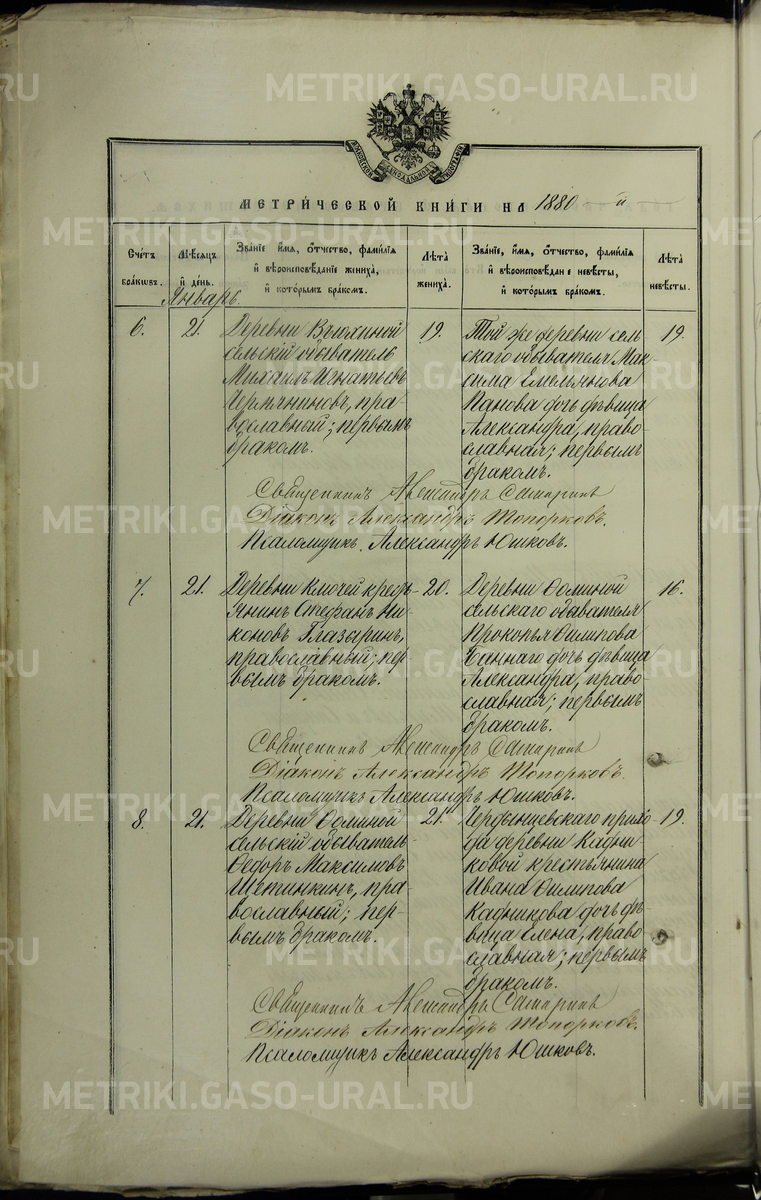 METRIKI.GASO-URAL.RU
МОСКОВСКОЙ СИНОДАЛЬНОЙ ТИПОГРАФІИ
МЕТРИ́ЧЕСКОЙ КНИ́ГИ НА 1880-й
Сче́тъ бра́ковъ.
Мѣ́сяцъ и҆ де́нь.
Зва́нїе, и҆́мя, ѻ҆́тчество, фами́лїя и҆ вѣроисповѣ́данїе жениха̀, и҆ кото́рымъ бра́комъ.
Лѣ́та жениха̀.
Зва́нїе, и҆́мя, ѻ҆́тчество, фами́лїя и҆ вѣроисповѣ́данїе невѣ́сты, и҆ кото́рымъ бра́комъ.
Лѣ́та невѣ́сты.
Январь.
6.
21.
Деревни Вьюхиной
сельскій обыватель
Михаилъ Игнатьевъ
православный; первымъ
бракомъ.
19.
Той же деревни сель-
скаго обывателя Мак-
сима Емельянова
Панова дочь дѣвица
Александра, право-
славная; первымъ
бракомъ.
19.
Священникъ
Діаконъ Александръ Топорковъ.
Псаломщикъ Александръ Юшковъ.
7.
21.
Деревни Ключей кресть-
янинъ Стефанъ Ни-
коновъ Глазыринъ,
православный; пер-
вымъ бракомъ.
20.
Деревни Ѳоминой
сельскаго обывателя
Прокопья Филипова
дочь дѣвица
Александра, право-
славная; первымъ
бракомъ.
16.
Священникъ
Діаконъ Александръ Топорковъ.
Псаломщикъ Александръ Юшковъ.
8.
21.
Деревни Ѳоминой
сельскій обыватель
Ѳедоръ Максимовъ
Щетинкинъ, пра-
вославный; пер-
вымъ бракомъ.
21.
прихо-
да деревни Кадни-
ковой крестьянина
Ивана Филипова
Кадникова дочь дѣ-
вица Елена, право-
славная; первымъ
бракомъ.
19.
Священникъ
Діаконъ Александръ Топорковъ.
Псаломщикъ Александръ Юшковъ.